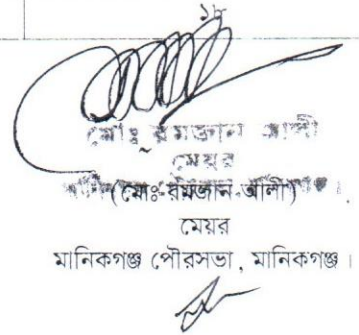 ১৮
মোঃ রমজান আলী
মেয়র
(মোঃ রমজান আলী)
মেয়র
মানিকগঞ্জ পৌরসভা, মানিকগঞ্জ।